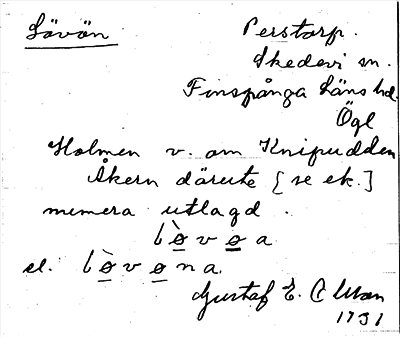 Lövön
Perstorp.
Skedevi sn.
Finspånga läns hd.
Ögl
Holmen v. om Knipudden
Åkern därute [se ek.]
numera utlagd.
lø̀vøa
el. lø̀vøna.
Gustaf E. Olsson
1931